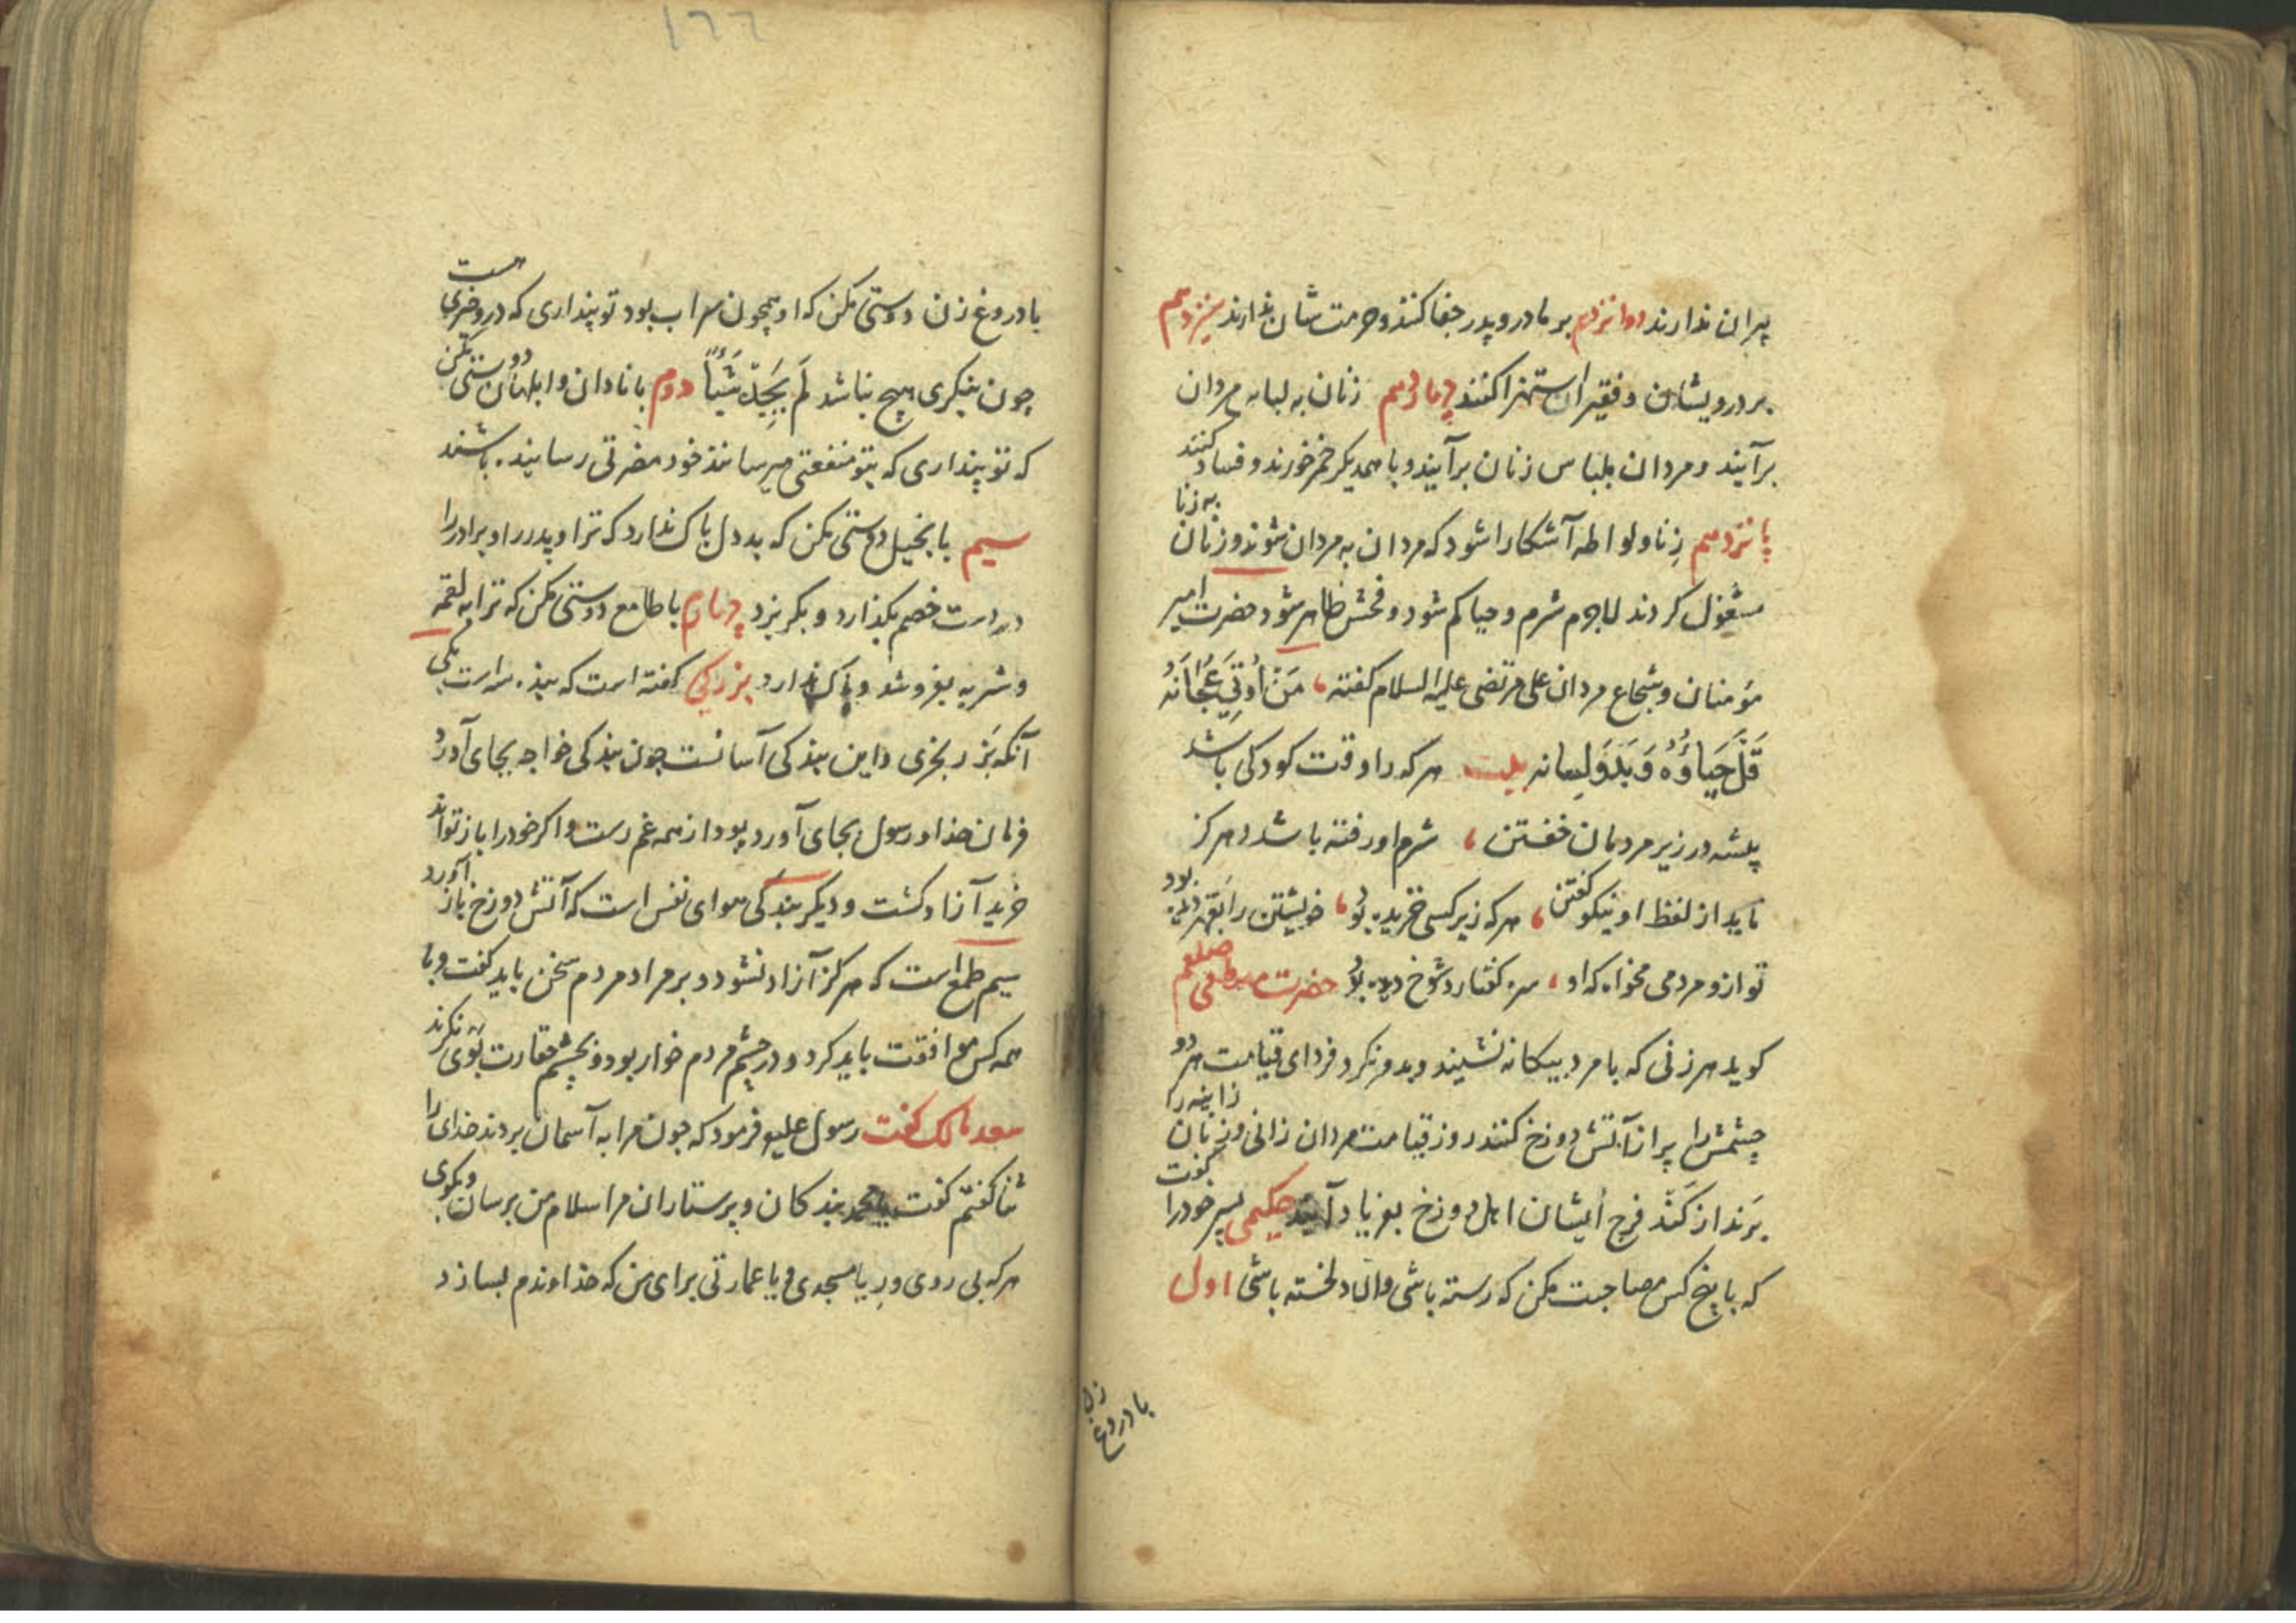 پیران ندارند دوانزدهم بر مادر و پدر جفا کنند و حرمت شان ندارند سیزدهم
بر درویشان و فقیران استهزا کنند چهاردهم زنان به لباس مردان
برآیند و مردان بلباس زنان برآیند و با همدیگر خمر خورند و فساد کنند
پانزدهم زنا و لواطه آشکارا شود که مردان به مردان شوند و زنان به زنا
مشغول کردند لاجرم شرم و حیا کم شود و فحش ظاهر شود حضرت امیر
مؤمنان و شجاع مردان علی مرتضی علیه السلام گفته، مَن اُوتی عجانه
قَلَّ حَیاؤُه وَ بَذَو لِسانه بیت هر که را وقت کودکی باشد
پیشه در زیر مردمان خفتن، شرم او رفته باشد و هرکز
ناید از لفظ او نیکو گفتن، هر که زیر کسی خزیده بود، خویشتن را
تو ازو مردمی مخواه که او، سره گفتار و شوخ دیده بود حضرت مصطفی صلعم
کوید هر زنی که با مرد بیکانه نشیند و بدو نکرد فردای قیامت هر دو
چشمش را پر از آتش دوزخ کنند روز قیامت مردان زانی و زنان زانیه را
بَرند از کَند فرج ایشان اهل دوزخ بفریاد آیند حکیمی پسر خود را گفت
که با پنج کس مصاحبت مکن که رسته باشی و الا دلخسته باشی اول
با دروغ زن
با دروغ زن دوستی مکن که او همچون سراب بود تو پنداری که درو خیری هست
چون بنکری هیچ نباشد لَم یَجِدهُ شَیئاً دوم با نادان و ابلهان دوستی مکن
که تو پنداری که بتو منفعتی میرسانند خود مضرتی رسانیده باشند
سیم با بخیل دوستی مکن که بد دل باک ندارد که ترا و پدر را و برادر را
در دست خصم بکذارد و بکریزد چهارم با طامع دوستی مکن که ترا به لقمه
و شربه بفروشد و باک ندارد بزرکی کفته است که بنده سه است یکی
آنکه بَزر بخری و این بندکی آسانست چون بندکی خواجه بجای آورد
فرمان خدا و رسول بجای آورده بود از همه غم رست و اکر خود را باز تواند
خرید آزاد کشت و دیکر بندکی هوای نفس است که آتش دوزخ باز آورد
سیم طمع است که هرکز آزاد نشود و بر مراد مردم سخن باید کفت و با
همه کس موافقت باید کرد و در چشم مردم خوار بود و بچشم حقارت بَوی نکرند
سعد مالک کفت رسول علیه فرمود که چون مرا به آسمان بردند خدای را
ثنا کفتم کفت یا محمد بندکان و پرستاران مرا سلام من برسان و بکوی
هر که بی روی و ریا مسجدی و یا عمارتی برای من که خداوندم بسازد